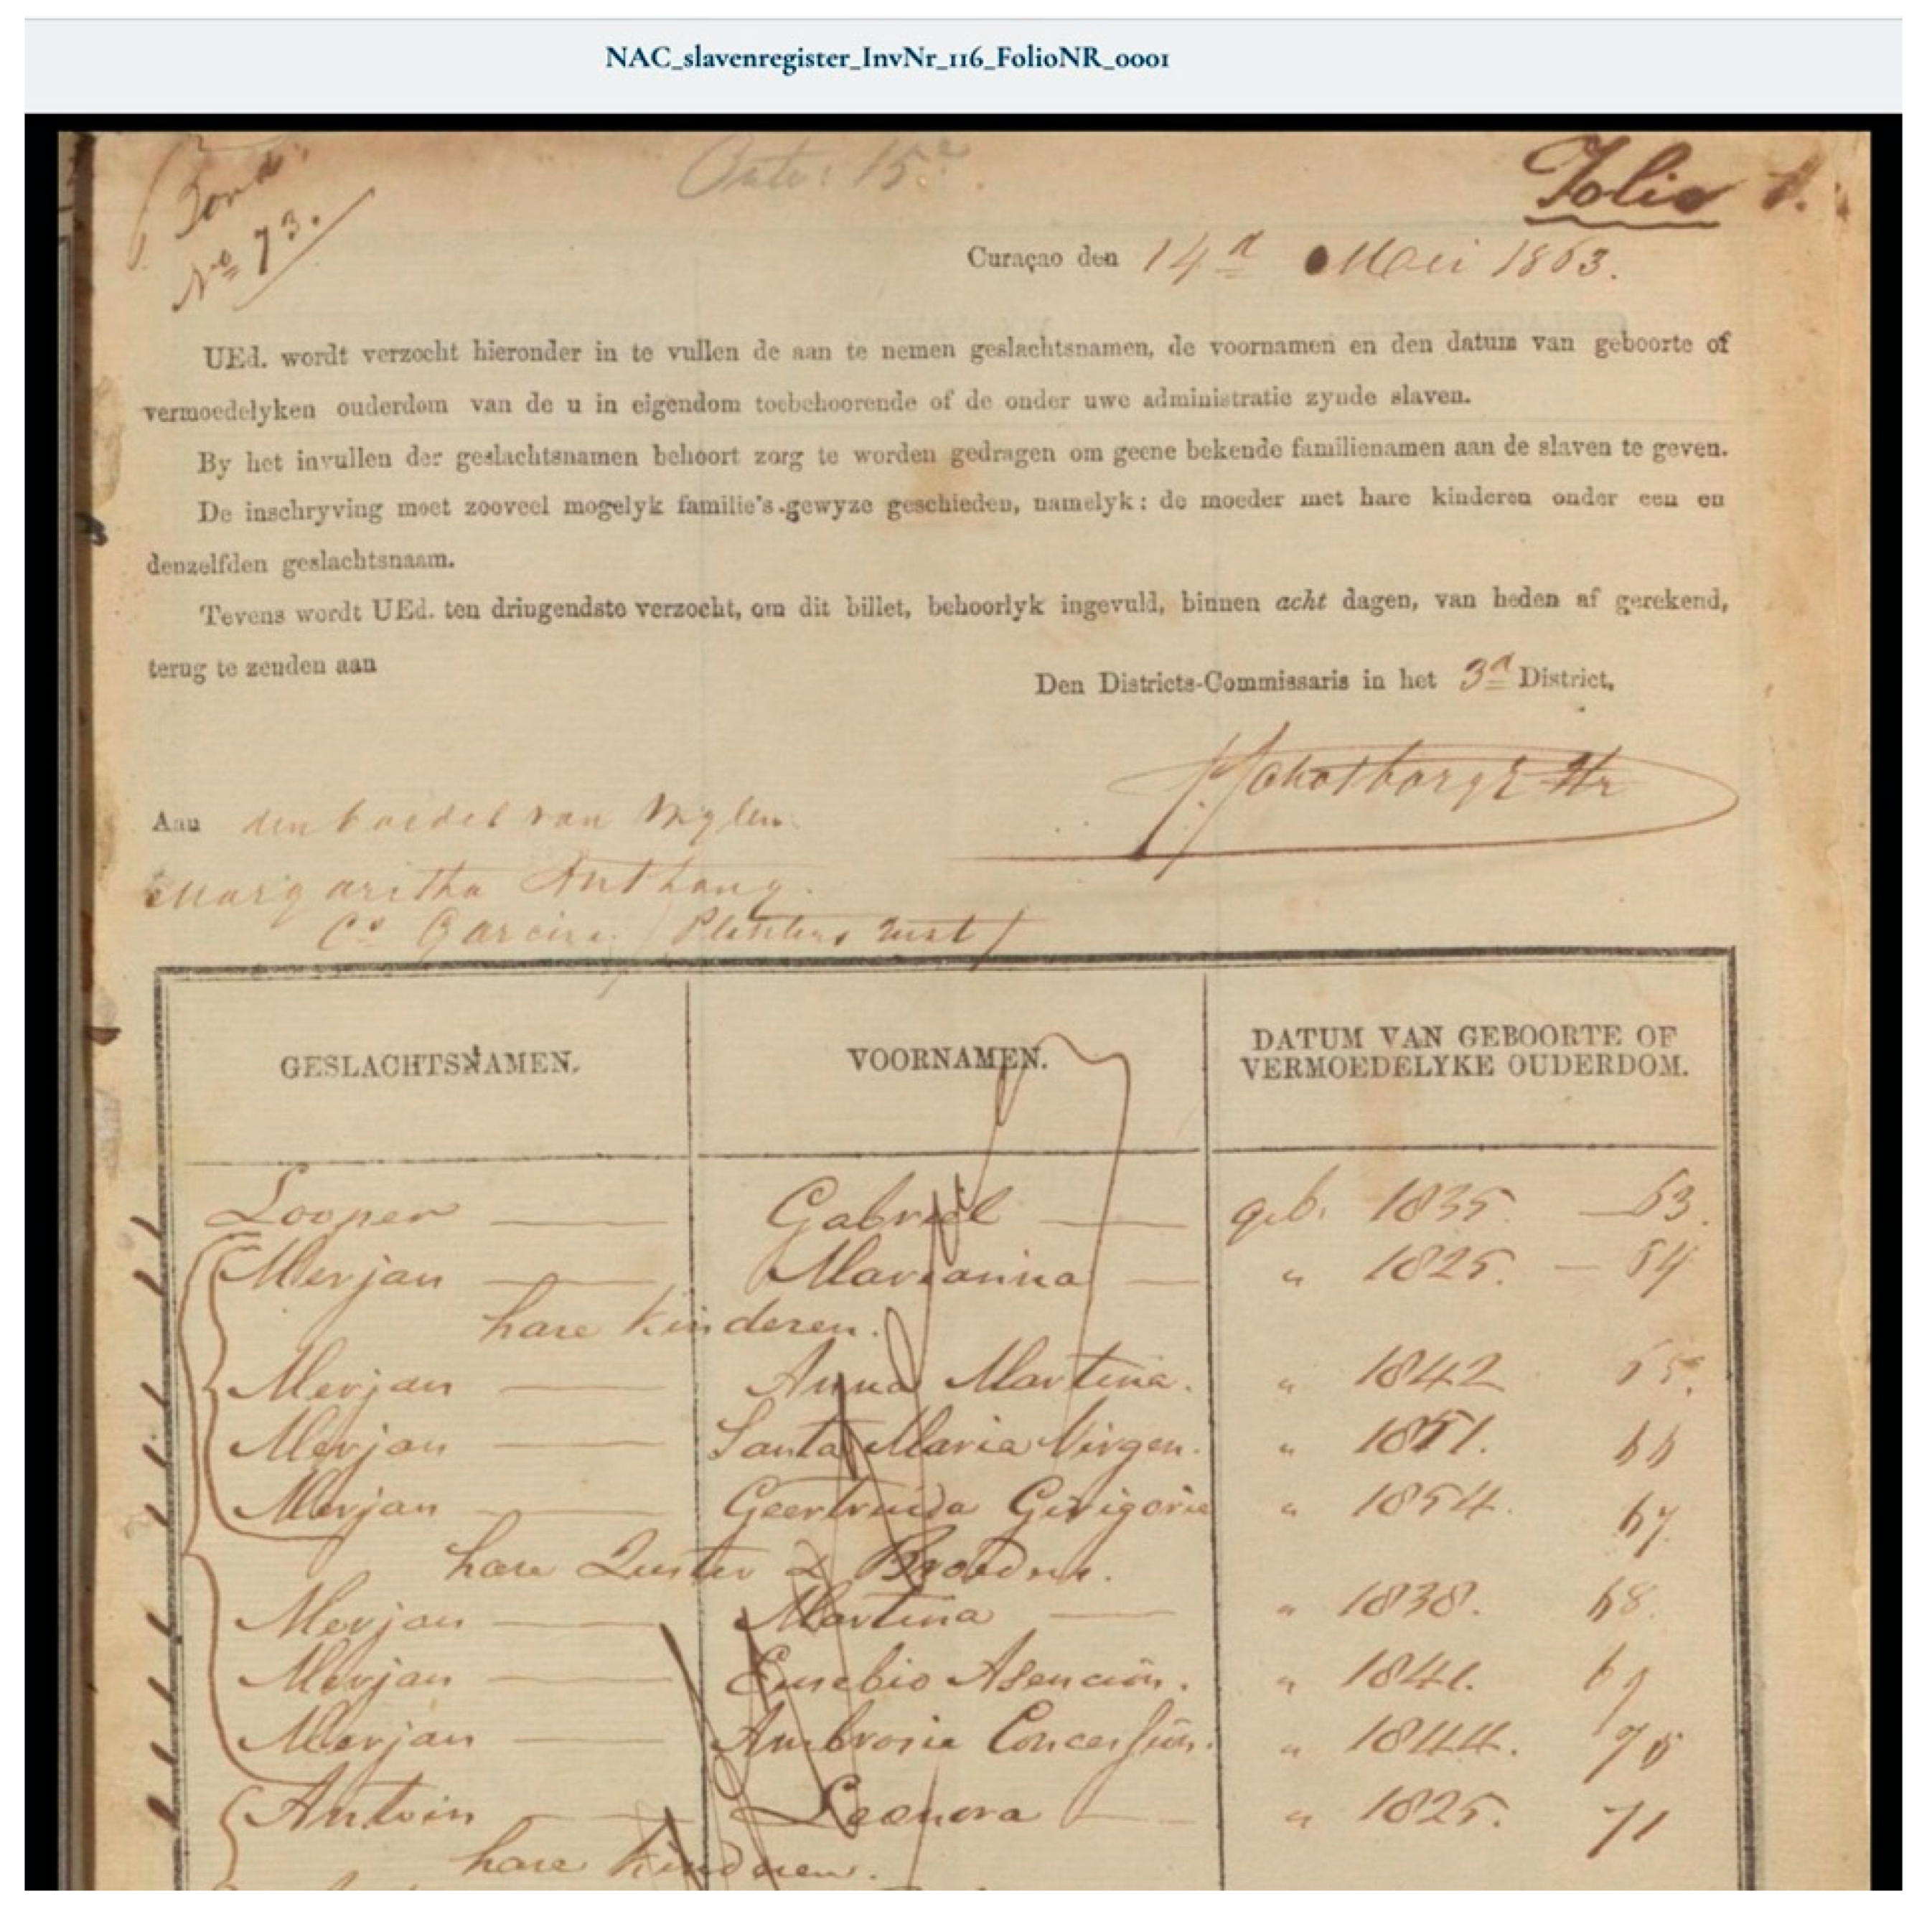 NAC_slavenregister_InvNr_116_FolioNR_0001
Folio 1.
No 73.
Curaçao den 14d Mei 1863.
UEd. wordt verzocht hieronder in te vullen de aan te nemen geslachtsnamen, de voornamen en den datum van geboorte of
vermoedelyken ouderdom van de u in eigendom toebehoorende of de onder uwe administratie zynde slaven.
By het invullen der geslachtsnamen behoort zorg te worden gedragen om geene bekende familienamen aan de slaven te geven.
De inschryving moet zooveel mogelyk familie's gewyze geschieden, namelyk: de moeder met hare kinderen onder een en
denzelfden geslachtsnaam.
Tevens wordt UEd. ten dringendste verzocht, om dit billet, behoorlyk ingevuld, binnen acht dagen, van heden af gerekend,
terug te zenden aan
Den Districts-Commissaris in het 3d District,
Aan den boedel van Wylen
Margaritha Anthony.
GESLACHTSNAMEN. VOORNAMEN. DATUM VAN GEBOORTE OF
VERMOEDELYKE OUDERDOM.
Looper Gabriël geb. 1835. 63.
Merjan Marianna " 1825. 64
hare kinderen.
Merjan Anna Martina. " 1842 65.
Merjan Santa Maria Virgen. " 1851. 66
Merjan Geertruida " 1854. 67.
hare Zuster & Broeders.
Merjan Martina " 1838. 68.
Merjan Eusebio Asencion. " 1841. 69
Merjan " 1844. 70
Antoin Leonora " 1825. 71
hare kinderen.